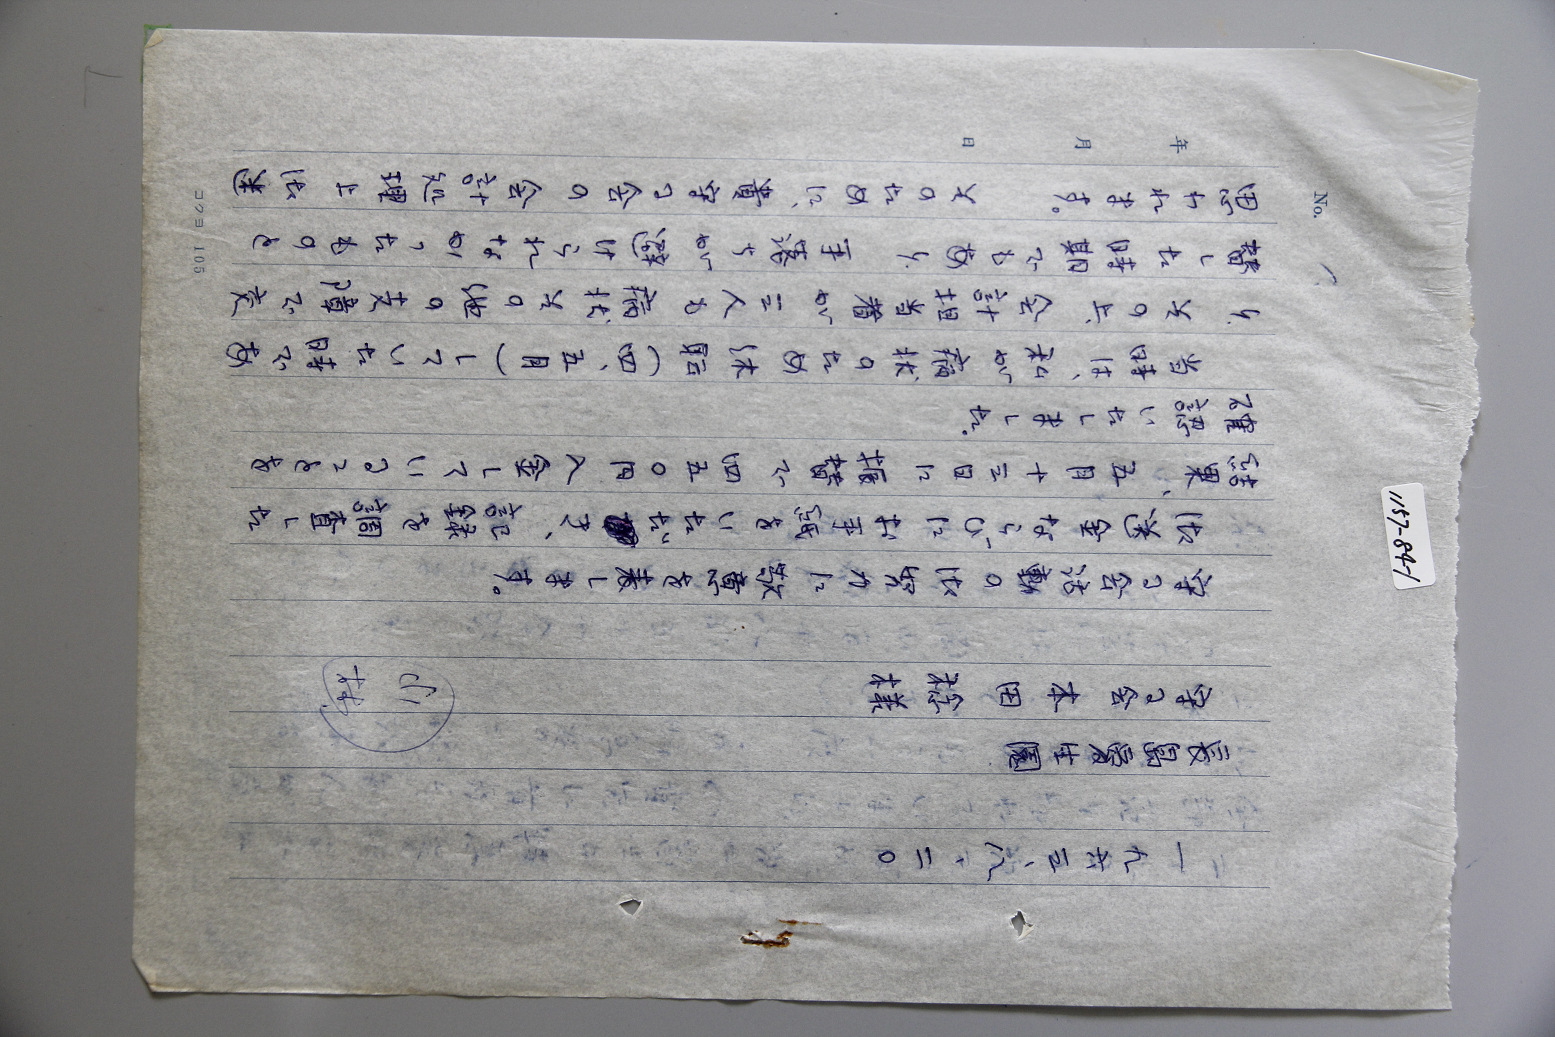 1157-84-1
No.
年 月 日
一九六三、八、二〇
長島愛生園
会 本田稔様
会活動の御労力に敬意を表します。
ならびに御手紙をいただき、記録を調査した
結果、五月十三日に振替で四五〇円入金していることを
確認いたしました。
当時は、私が病状のため休暇(四、五月)していた時であ
り、その上、会計担当者が二人も病状その他の支障で交
替した時期でもあり 手落ちが避けられなかったものと
思われます。 そのために、貴 会の会計処理上御
コクヨ 105